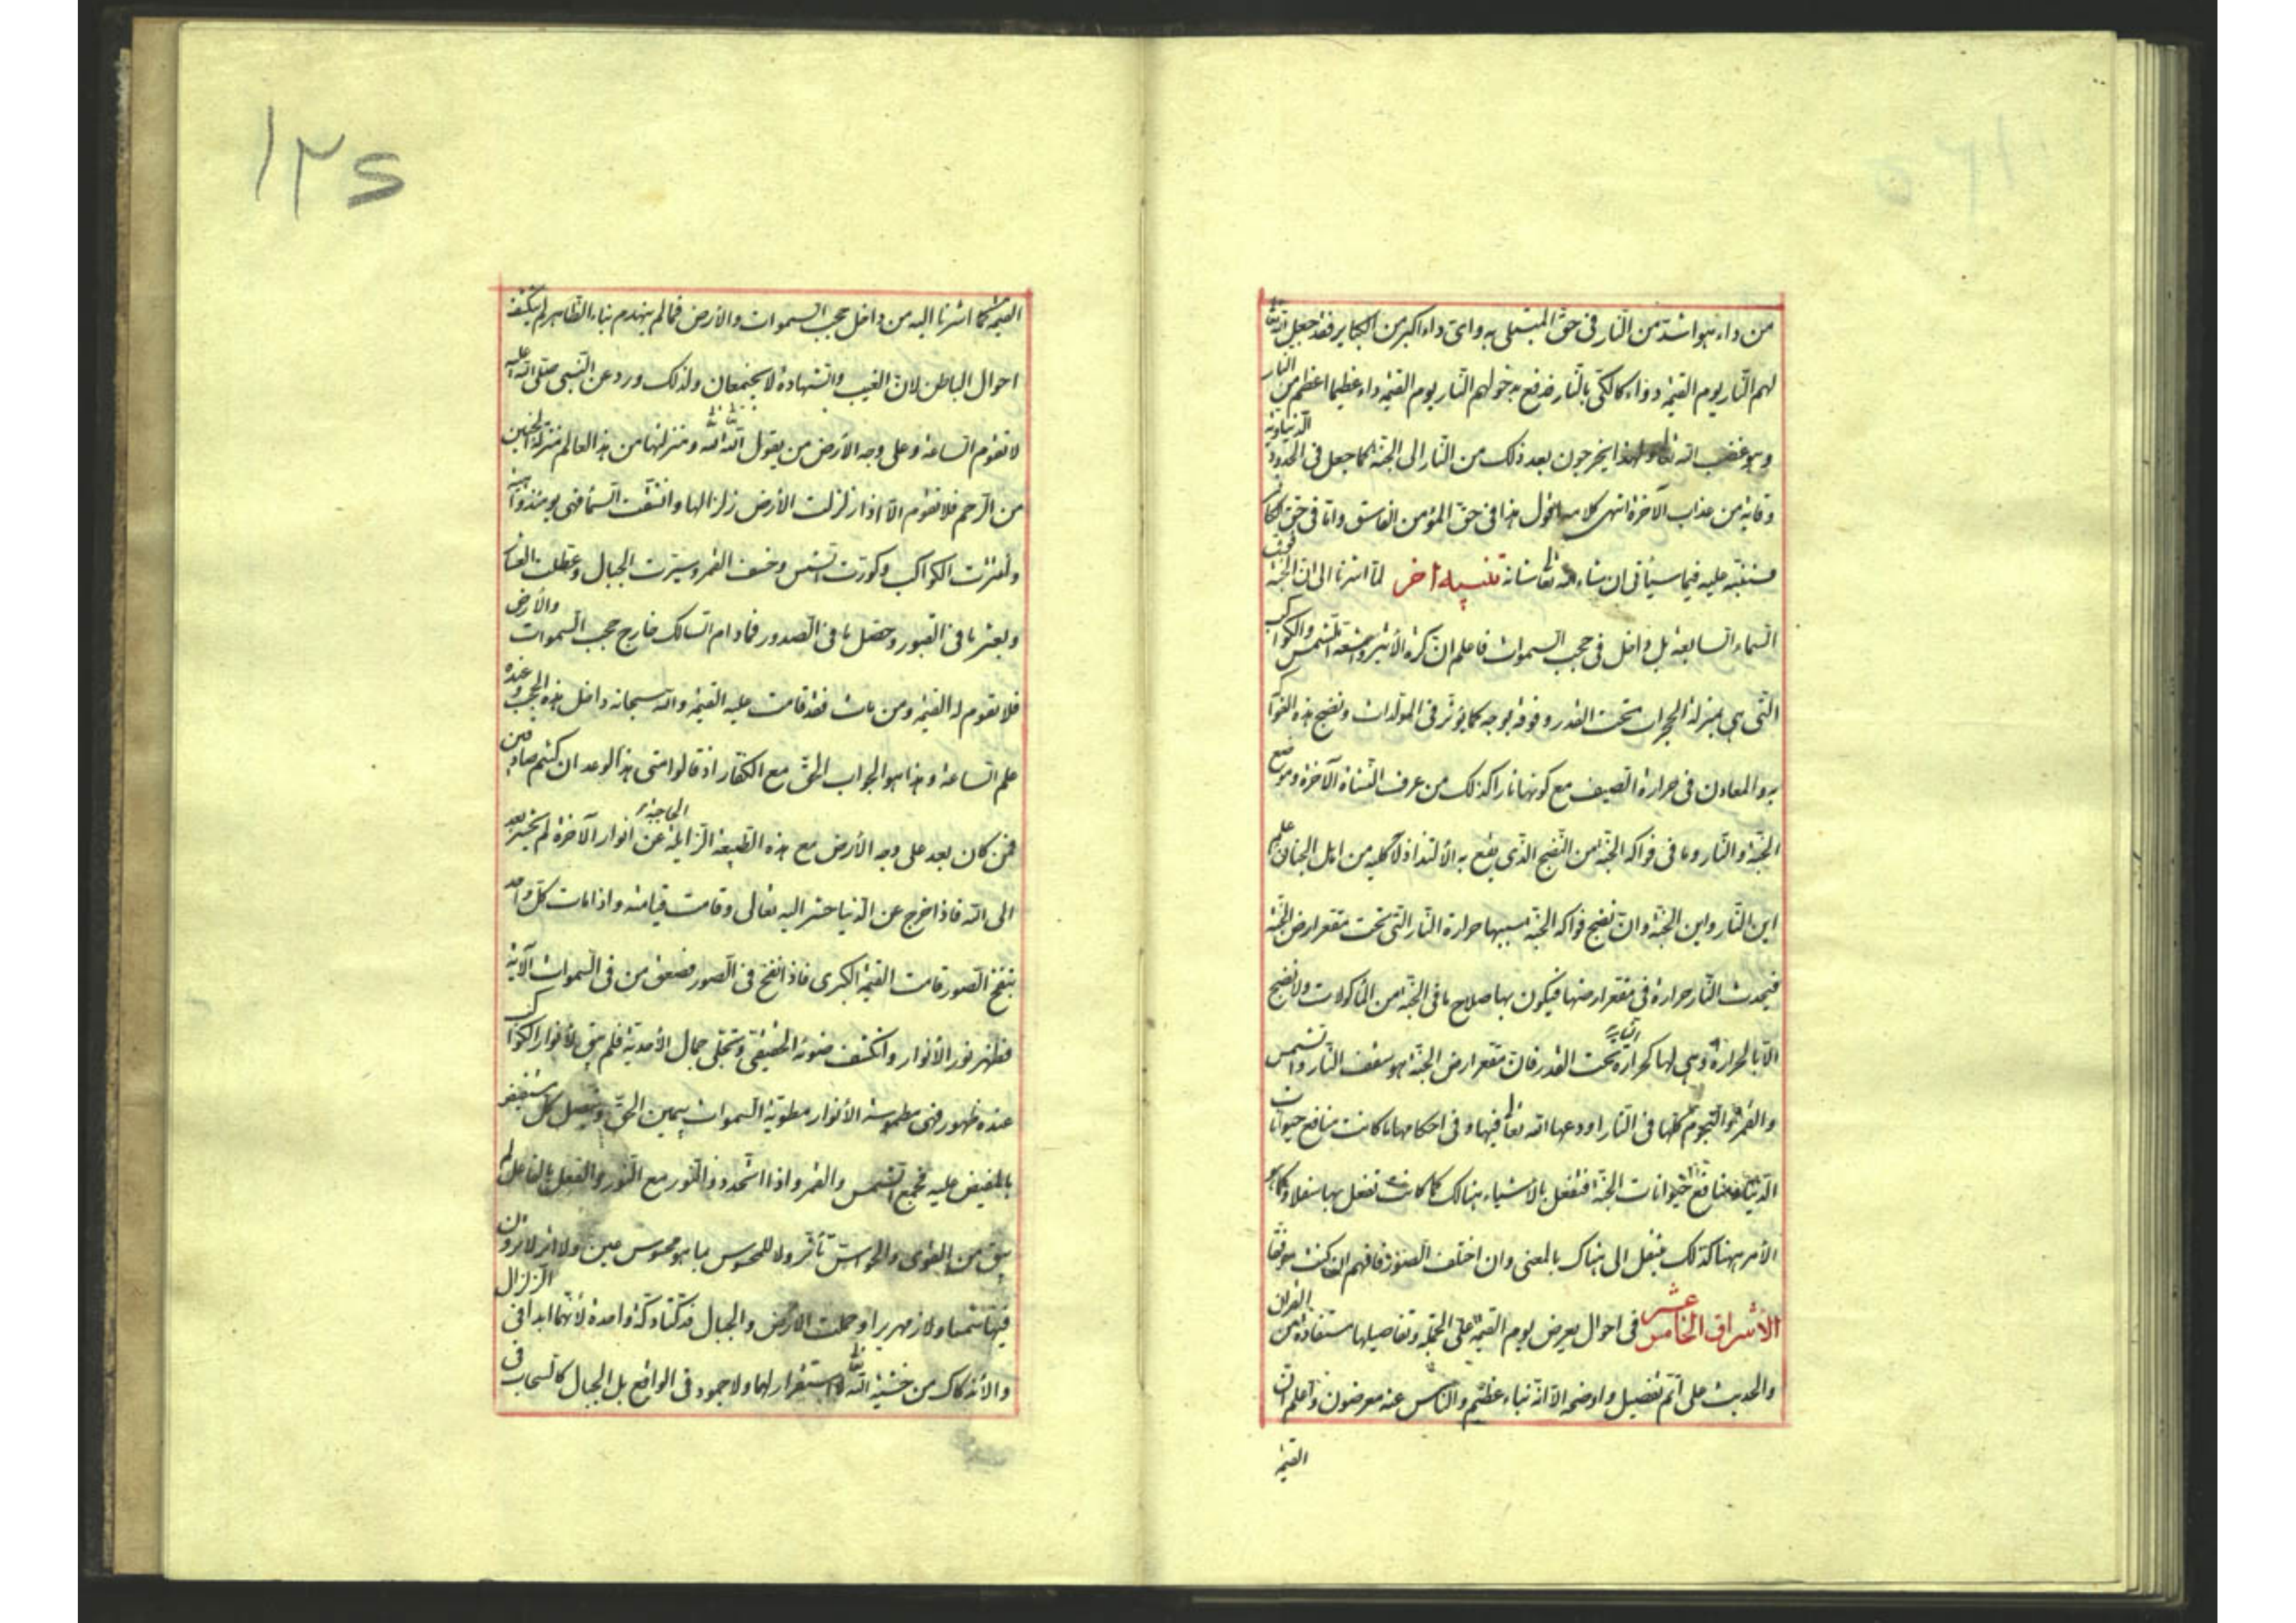 من داء هو اشد من النار فى حق المبتلى به واى داء اكبر من الكباير فقد جعل الله تعا
لهم النار يوم القيمة دواء كالكى بالنار فدفع بدخولهم النار يوم القيمة داء عظيما اعظم من النار
وهو غضب الله تعا ولهذا يخرجون بعد ذلك من النار الى الجنة كما جعل فى الحدود الدنياوية
وقاية من عذاب الآخرة انتهى كلامه اقول هذا فى حق المؤمن الفاسق واما فى حق الكا
فستنبه عليه فيما سيأتى ان شاء الله تعا شانه تنبيه آخر لما اشرنا الى ان الجنة فوق
السماء السابعة بل داخل فى حجب السموات فاعلم ان كرة الأثير واشعة الشمس والكواكب
التى هى بمنزلة الجمرات تحت القدر وفوقه بوجه كما يؤثر فى المولدات وتضج هذه الفواكه
به والمعادن فى حرارة الصيف مع كونها نارا كذلك من عرف النشاة الآخرة وموضع
الجنة والنار وما فى فواكه الجنة من النضج الذى يقع به الألتذاذ لآكليه من اهل الجنان علم
اين النار واين الجنة وان نضج فواكه الجنة سببها حرارة النار التى تحت مقعر ارض الجنة
فيحدث النار حرارة فى مقعر ارضها فيكون بها صلاح ما فى الجنة من الماكولات ولا نضج
الا بالحرارة وهى لها كحرارة النار تحت القدر فان مقعر ارض الجنة هو سقف النار والشمس
والقمر والنجوم كلها فى النار اودعها الله تعا فيها وفى احكامها ما كانت منافع حيوانات
الدنيا منافع حيوانات الجنة فتفعل بالاشياء هنالك كما كانت تفعل بها سفلا وكما هو
الأمر ههنا كذلك ينتقل الى هناك بالمعنى وان اختلف الصور فافهم ان كنت موفقا
الأشراق الخامس عشر فى احوال يعرض يوم القيمة على الجملة وتفاصيلها مستفادة من القرآن
والحديث على اتم تفصيل واوضحه الا انه نباء عظيم والناس عنه معرضون واعلم ان
القيمة
١٢٥
القيمة كما اشرنا اليه من داخل حجب السموات والأرض فما لم ينهدم بناء الظاهر لم ينكشف
احوال الباطن لان الغيب والشهادة لا يجتمعان ولذلك ورد عن النبى صلى الله عليه
لا تقوم الساعة وعلى وجه الأرض من يقول الله الله ومنزلتها من هذا العالم منزلة الجنين
من الرحم فلا تقوم الا اذا زلزلت الأرض زلزالها وانشقت السماء فهى يومئذ واهية
وانتثرت الكواكب وكورت الشمس وخسف القمر وسيرت الجبال وعطلت العشار
وبعثر ما فى القبور وحصل ما فى الصدور فمادام السالك خارج حجب السموات والأرض
فلا تقوم له القيمة ومن مات فقد قامت عليه القيمة والله سبحانه داخل هذه الحجب وعنده
علم الساعة وهذا هو الجواب الحق مع الكفار اذ قالوا متى هذا الوعد ان كنتم صادقين
فمن كان بعد على وجه الأرض مع هذه الطبيعة الزايلة الحاجبة عن انوار الآخرة لم يحشر بعد
الى الله فاذا خرج عن الدنيا حشر اليه تعالى وقامت قيامته واذا مات كل واحد
بنفخ الصور قامت القيمة الكبرى فاذا نفخ فى الصور فصعق من فى السموات الآية
فظهر نور الأنوار وانكشف ضوءه الحقيقى وتجلى جمال الأحدية فلم يبق لأنوار الكواكب
عنده ظهور فهى مطموسة الأنوار مطوية السموات بيمين الحق ويتصل كل مستفيض
بالمفيض عليه فجمع الشمس والقمر واذا اتحد ذو النور مع النور والفعل بالفاعل لم
يبق من القوى والحواس تأثر ولا للمحسوس بما هو محسوس عين ولا اثر لا يرون
فيها شمسا ولا زمهريرا وحملت الأرض والجبال فدكتا دكة واحدة لأنهما ابدا فى الزلزال
والأندكاك من خشية الله تعا لا استقرار لهما ولا جمود فى الواقع بل الجبال كالسحاب فى